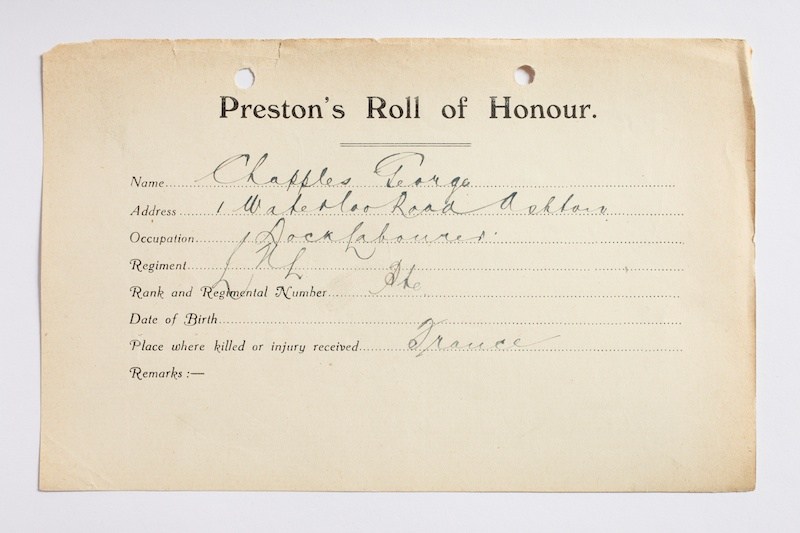 Preston's Roll of Honour.
Name Chapples George
Address 1 Waterloo Road Ashton
Occupation Dock Labourer.
Regiment L N L
Rank and Regimental Number Pte
Date of Birth
Place where killed or injury received France
Remarks :—